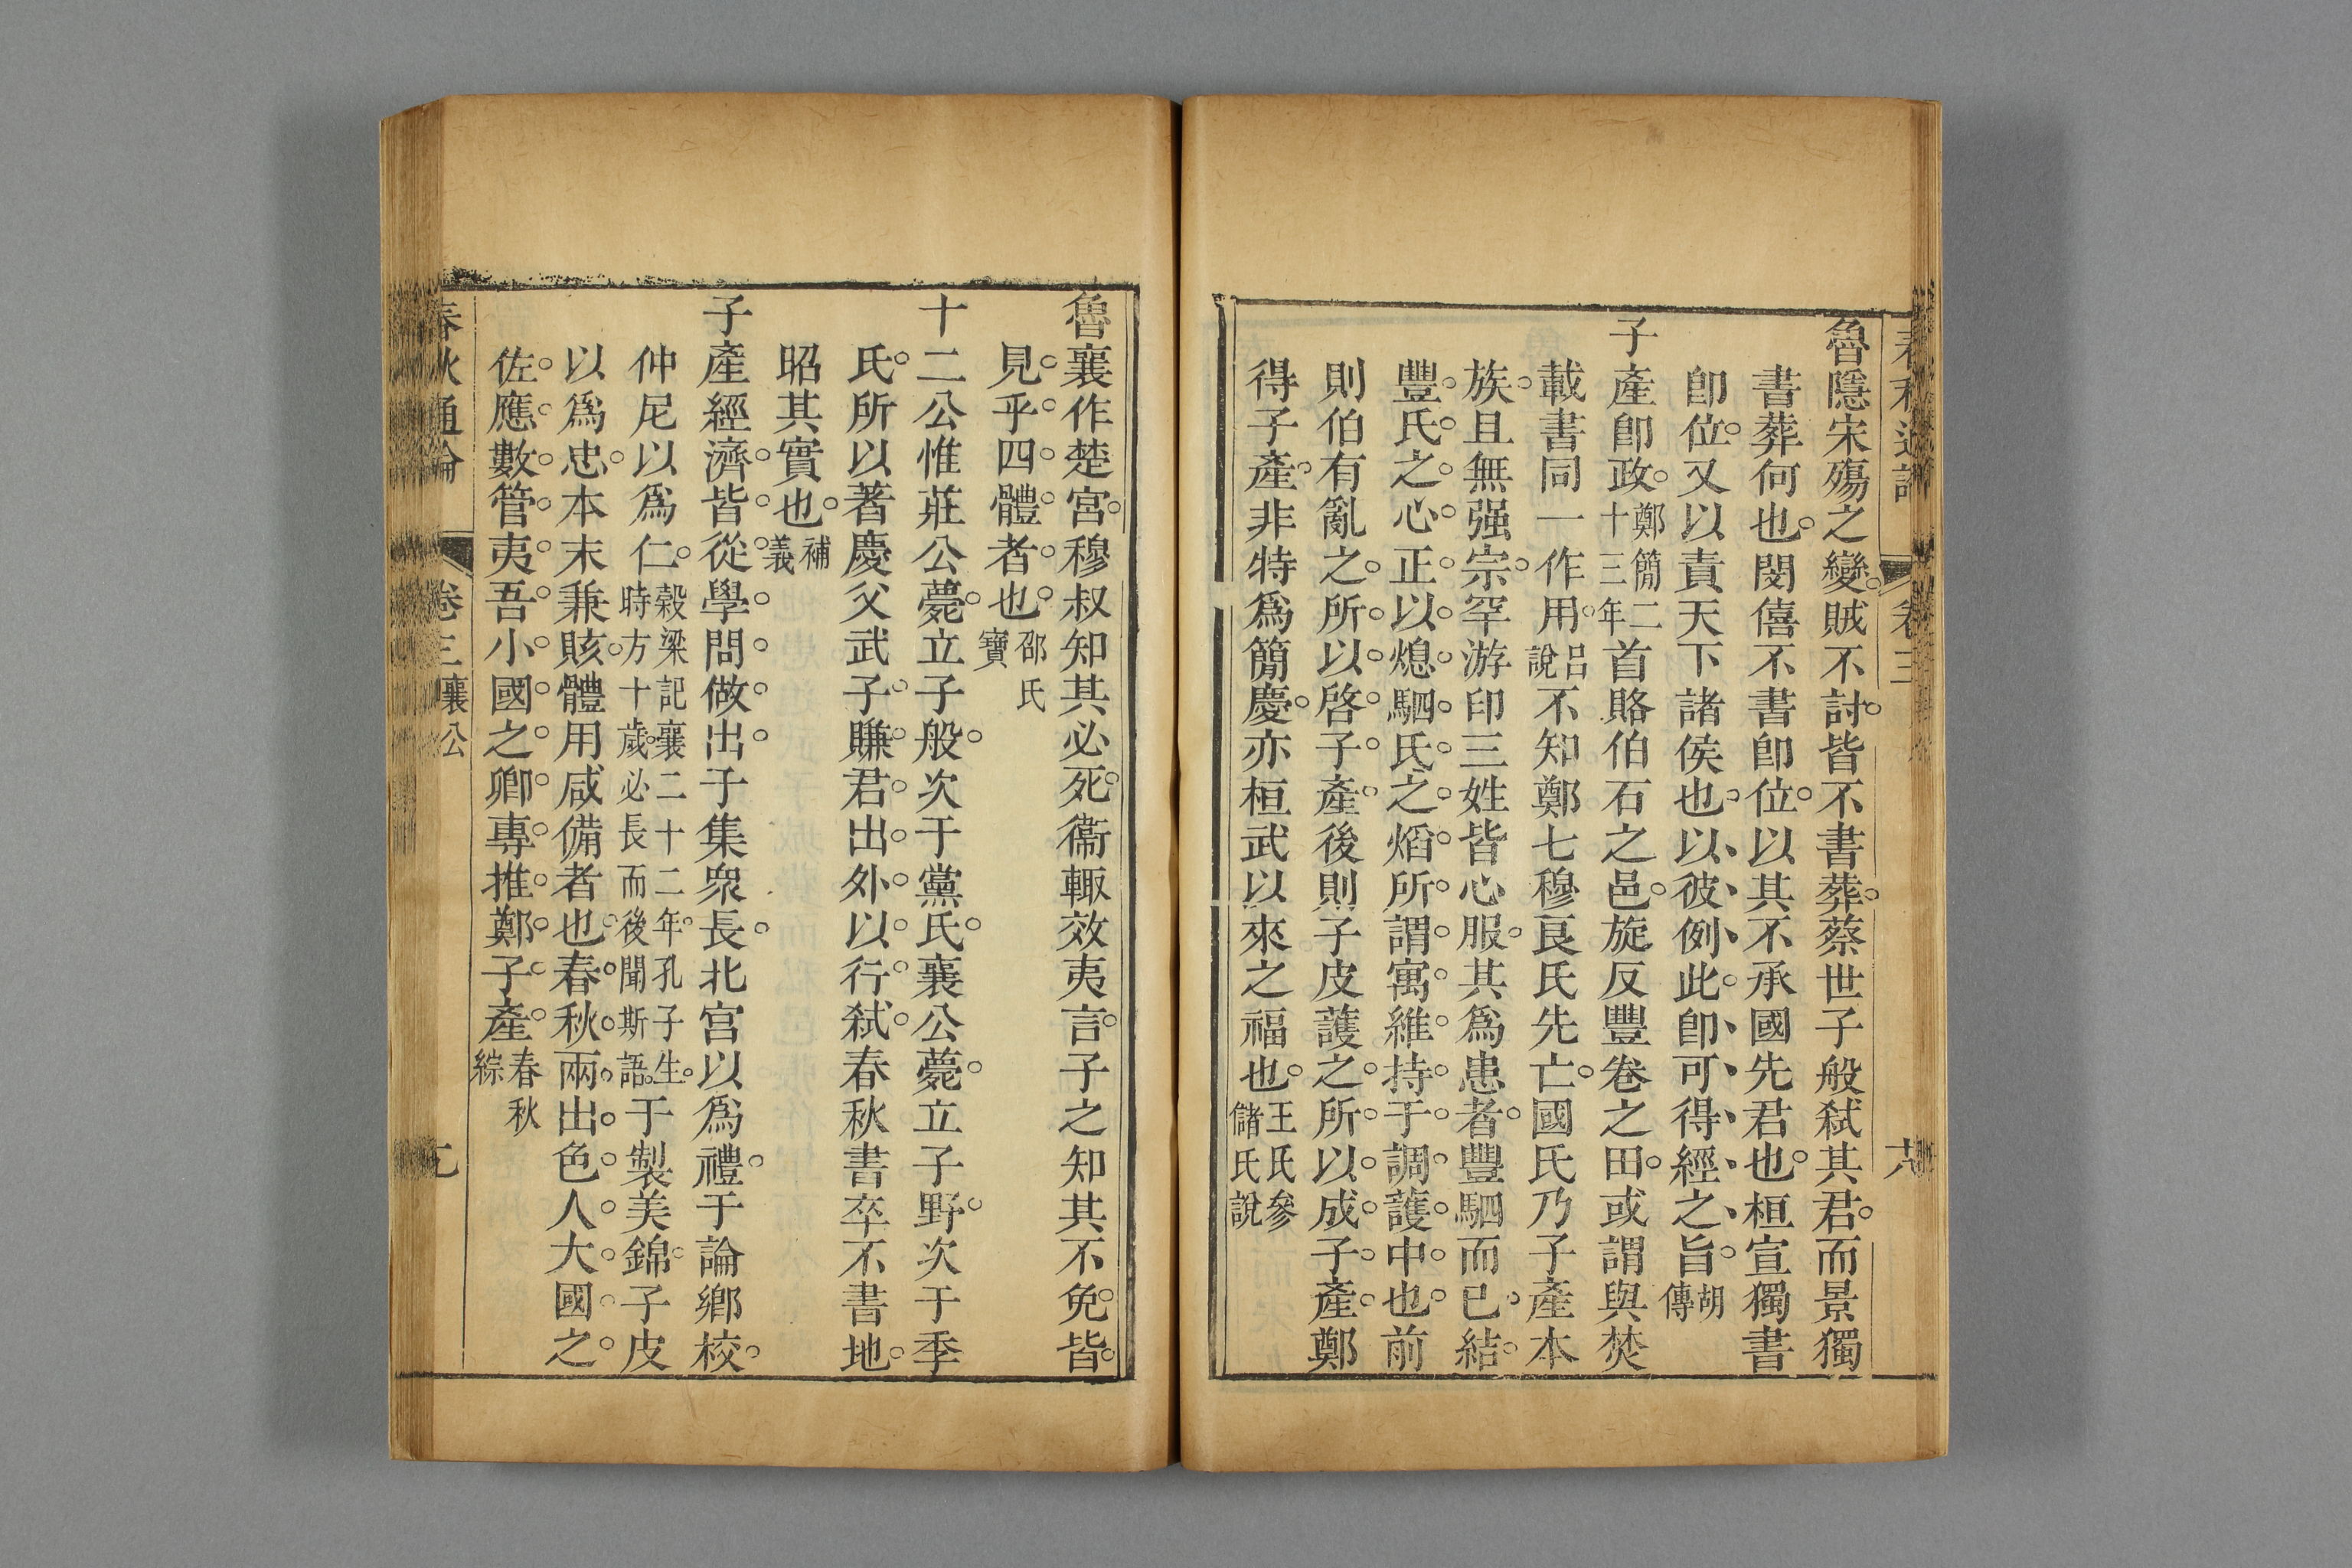 魯隱宋殤之變賊不討皆不書葬蔡世子般弑其君而景獨
書葬何也閔僖不書卽位以其不承國先君也桓宣獨書
卽位又以責天下諸侯也以彼例此卽可得經之旨胡傳
子產卽政鄭簡二十三年首賂伯石之邑旋反豐卷之田或謂與焚
載書同一作用呂說不知鄭七穆良氏先亡國氏乃子產本
族且無强宗罕游印三姓皆心服其爲患者豐駟而已結
豐氏之心正以熄駟氏之燄所謂寓維持于調護中也前
則伯有亂之所以啓子產後則子皮護之所以成子產鄭
得子產非特爲簡慶亦桓武以來之福也王氏參儲氏說
魯襄作楚宮穆叔知其必死衞輒效夷言子之知其不免皆
見乎四體者也邵氏寶
十二公惟莊公薨立子般次于黨氏襄公薨立子野次于季
氏所以著慶父武子賺君出外以行弑春秋書卒不書地
昭其實也補義
子產經濟皆從學問做出子集衆長北宮以爲禮于論鄉校
仲尼以爲仁榖梁記襄二十二年孔子生時方十歲必長而後聞斯語于製美錦子皮
以爲忠本末兼賅體用咸備者也春秋兩出色人大國之
佐應數管夷吾小國之卿專推鄭子產春秋綜
春秋通論
卷三 襄公